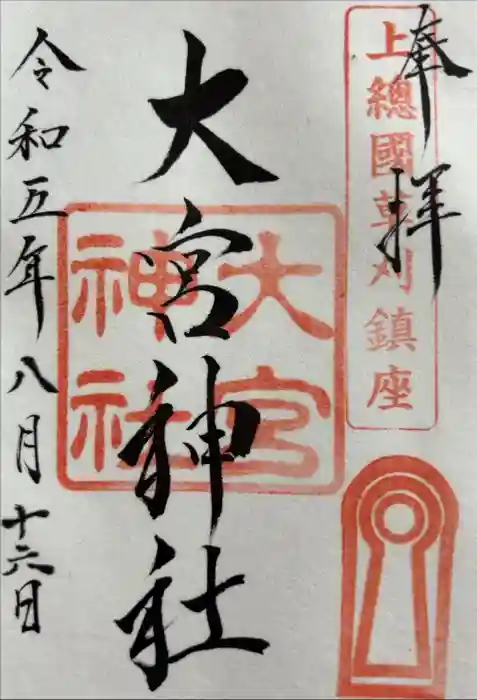 奉拝
上總國草刈鎮座
大宮神社
大宮
神社
令和五年八月十六日